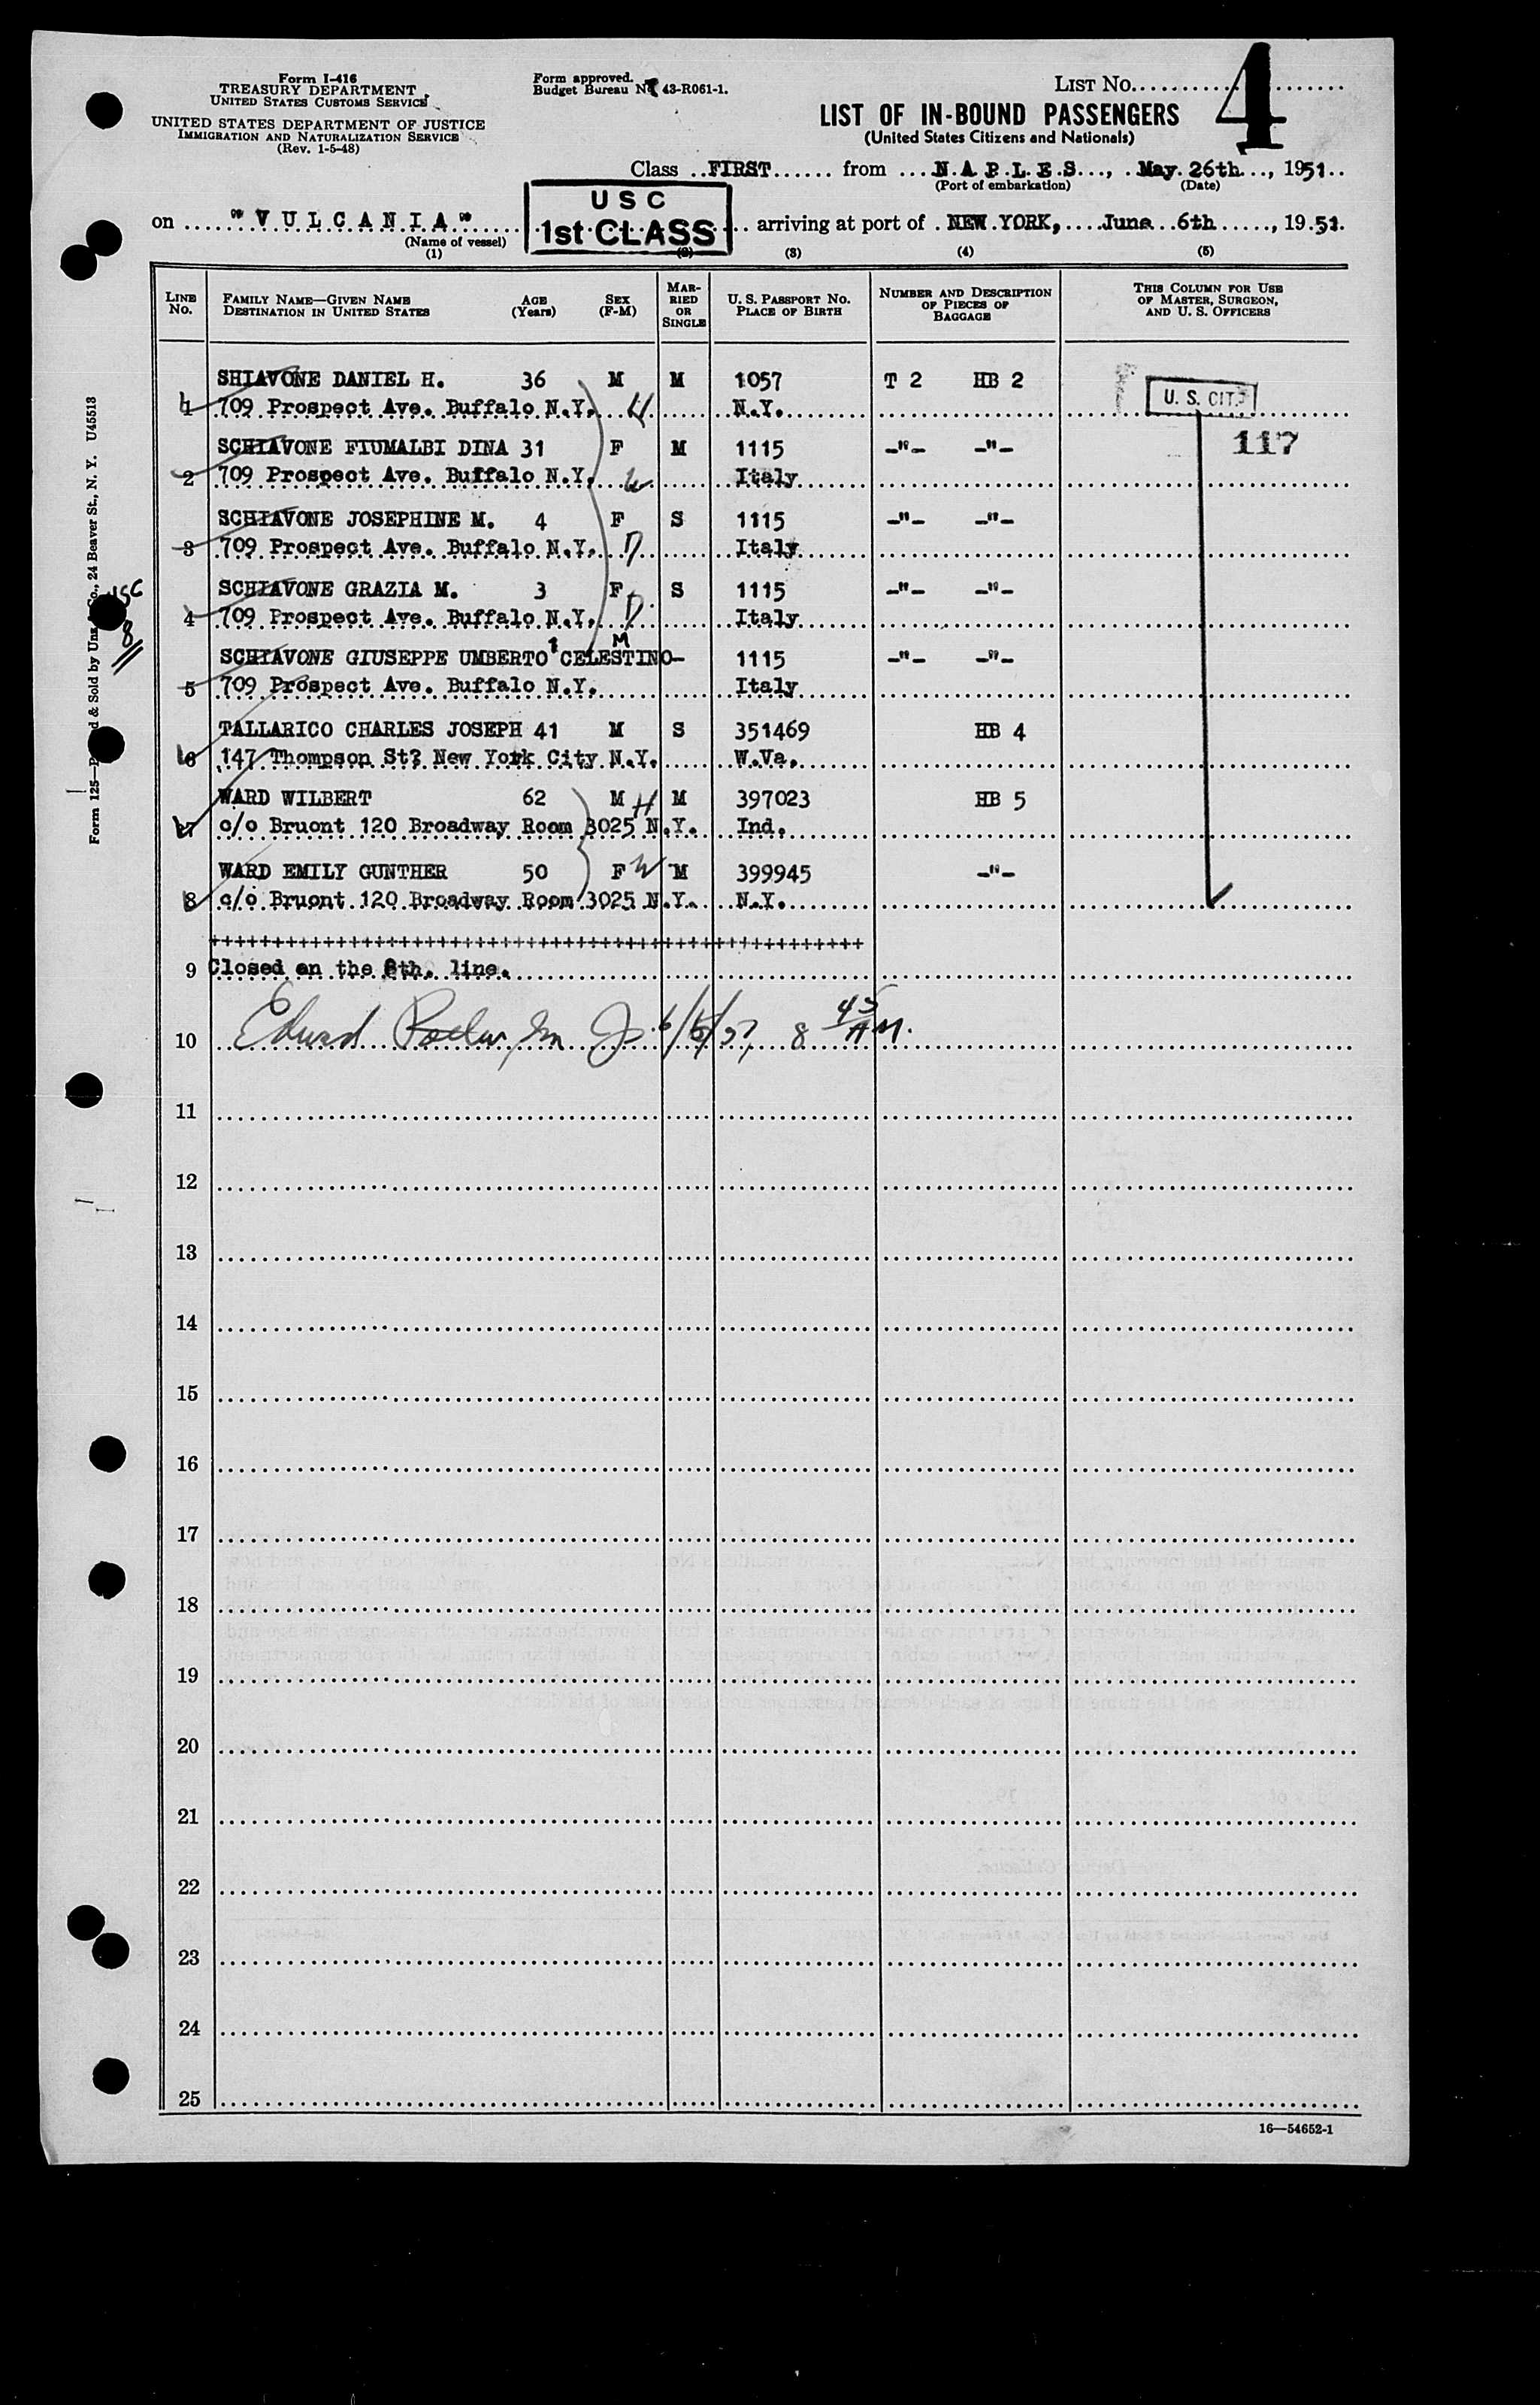 Form I-416
TREASURY DEPARTMENT
UNITED STATES CUSTOMS SERVICE
UNITED STATES DEPARTMENT OF JUSTICE
IMMIGRATION AND NATURALIZATION SERVICE
(Rev. 1-5-48)
Form approved.
Budget Bureau No. 43-R061-1.
LIST No. 4
LIST OF IN-BOUND PASSENGERS
(United States Citizens and Nationals)
Class FIRST from NAPLES, May 26th, 1951
(Port of embarkation) (Date)
USC
1st CLASS
on "VULCANIA" arriving at port of NEW YORK, June 6th, 1951.
(Name of vessel)
(1) (2) (3) (4) (5)
LINE No. FAMILY NAME—GIVEN NAME DESTINATION IN UNITED STATES AGE (Years) SEX (F-M) MARRIED OR SINGLE U. S. PASSPORT No. PLACE OF BIRTH NUMBER AND DESCRIPTION OF PIECES OF BAGGAGE THIS COLUMN FOR USE OF MASTER, SURGEON, AND U. S. OFFICERS
SHIAVONE DANIEL H. 36 M M 1057 T 2 HB 2 U. S. CIT.
1 709 Prospect Ave. Buffalo N.Y. H N.Y.
117
SCHIAVONE FIUMALBI DINA 31 F M 1115 -"- -"-
2 709 Prospect Ave. Buffalo N.Y. W Italy
SCHIAVONE JOSEPHINE M. 4 F S 1115 -"- -"-
3 709 Prospect Ave. Buffalo N.Y. D Italy
SCHIAVONE GRAZIA M. 3 F S 1115 -"- -"-
4 709 Prospect Ave. Buffalo N.Y. D Italy
1 M
SCHIAVONE GIUSEPPE UMBERTO CELESTINO- 1115 -"- -"-
5 709 Prospect Ave. Buffalo N.Y. Italy
TALLARICO CHARLES JOSEPH 41 M S 351469 HB 4
6 147 Thompson St? New York City N.Y. W.Va.
WARD WILBERT 62 M H M 397023 HB 5
7 c/o Bruont 120 Broadway Room 3025 N.Y. Ind.
WARD EMILY GUNTHER 50 F W M 399945 -"-
8 c/o Bruont 120 Broadway Room 3025 N.Y. N.Y.
+++++++++++++++++++++++++++++++++++++++++++++++++++
9 Closed on the 8th. line.
10 Edward 8 45 AM.
11
12
13
14
15
16
17
18
19
20
21
22
23
24
25
16—54652-1
USC
8
24 Beaver St., N. Y. U45513